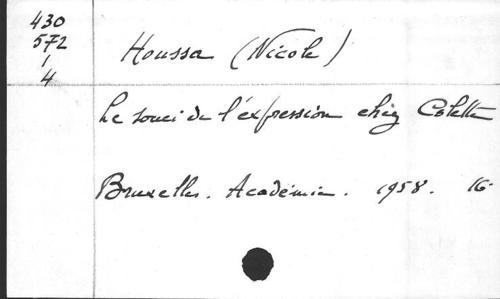 430
572
1
4
Houssa (Nicole)
Le souci de l'expression chez Colette
Bruxelles. Académie. 1958. 16-